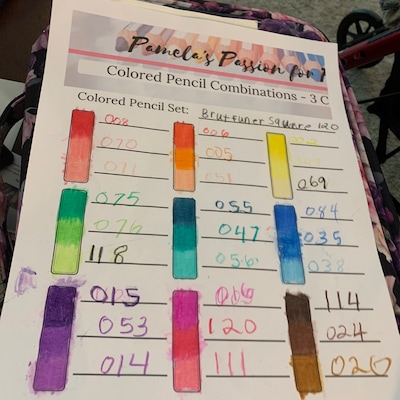 Pamela's Passion for
Colored Pencil Combinations - 3 C
Colored Pencil Set: Brutfuner Square 120
008
070
071
006
005
051
069
075
076
118
055
047
056
084
035
038
015
053
014
006
120
111
114
024
020